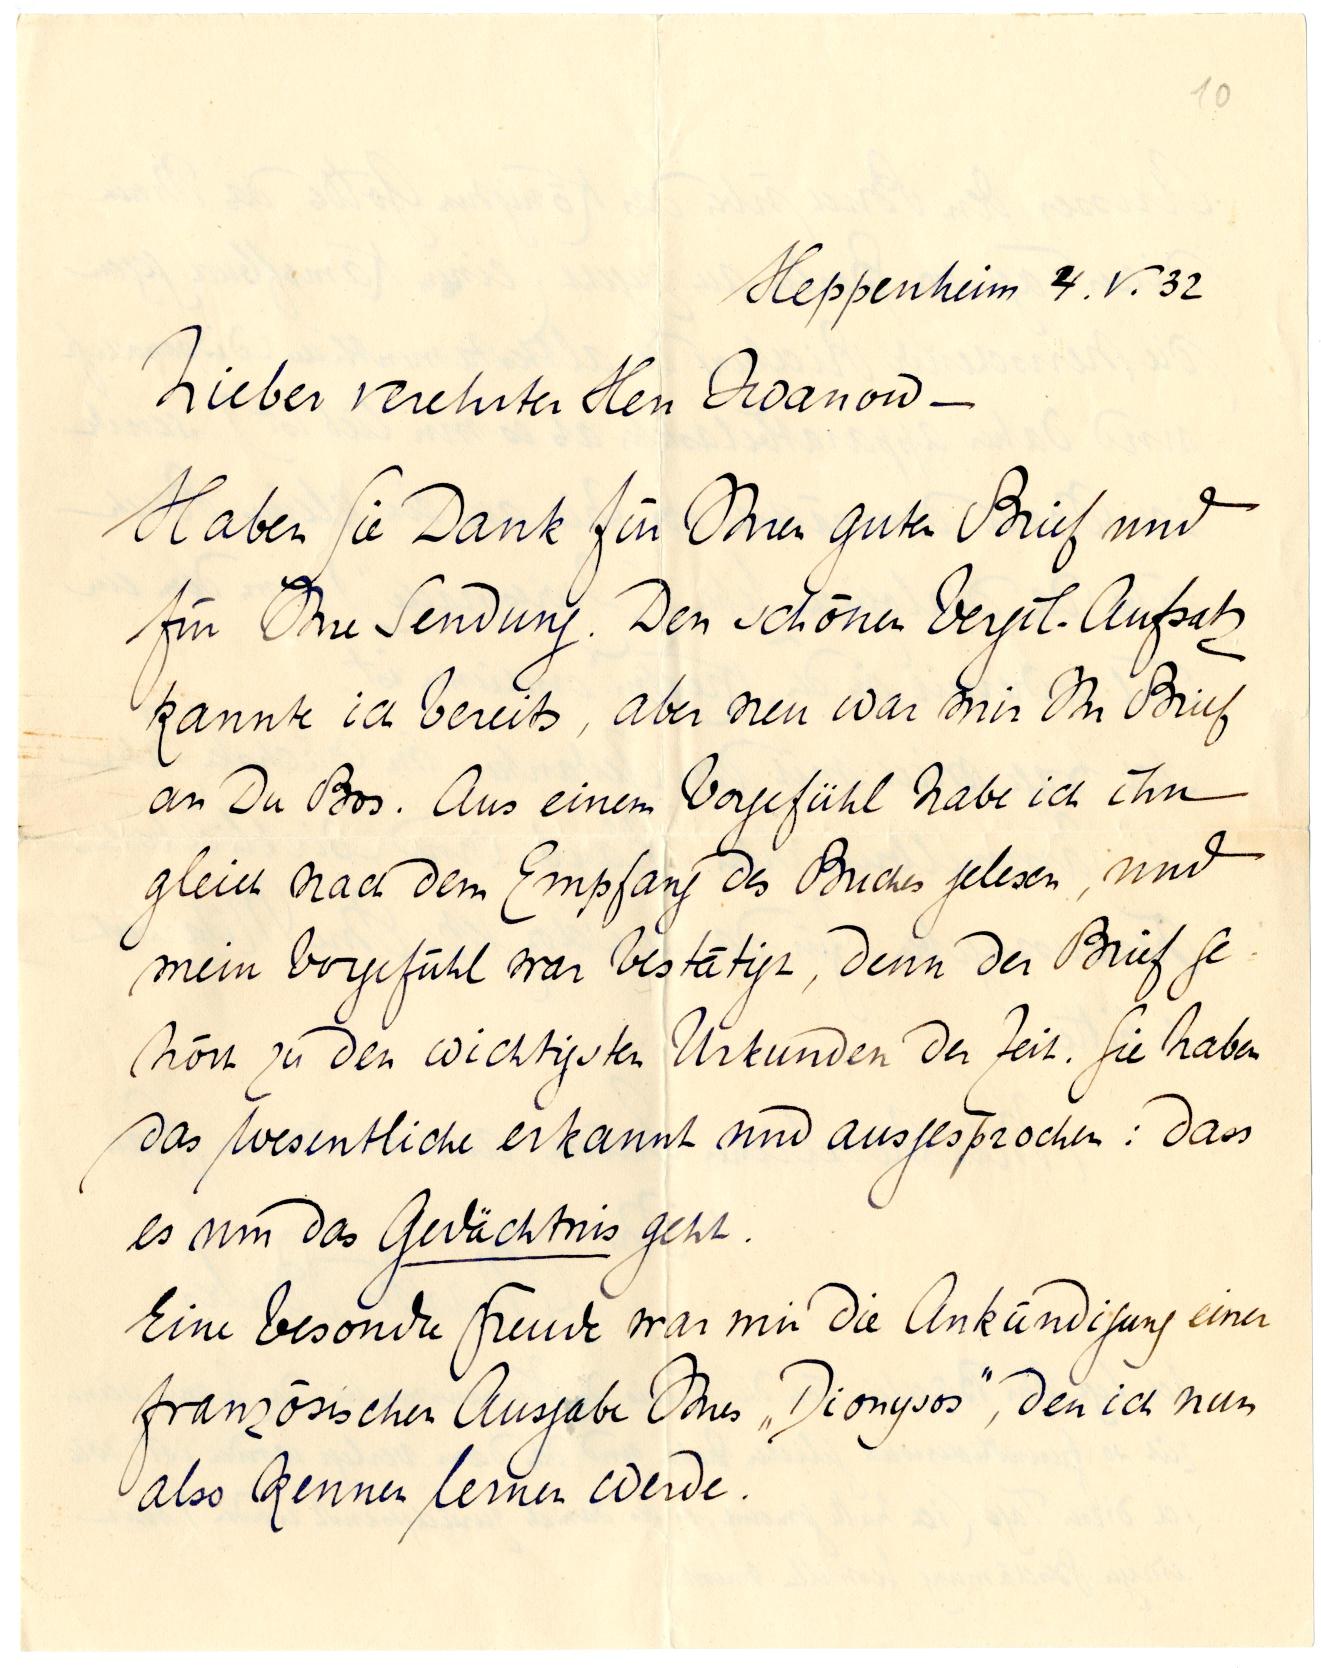 10
Heppenheim 4. V. 32
Lieber verehrter Herr Iwanow –
Haben Sie Dank für Ihren guten Brief und
für Ihre Sendung. Den schönen Vergil-Aufsatz
kannte ich bereits, aber neu war mir Ihr Brief
an Du Bos. Aus einem Vorgefühl habe ich ihn
gleich nach dem Empfang des Buches gelesen, und
mein Vorgefühl war bestätigt, denn der Brief ge-
hört zu den wichtigsten Urkunden der Zeit. Sie haben
das Wesentliche erkannt und ausgesprochen: dass
es um das Gedächtnis geht.
Eine besondre Freude war mir die Ankündigung einer
französischen Ausgabe Ihres „Dionysos“, den ich nun
also kennen lernen werde.